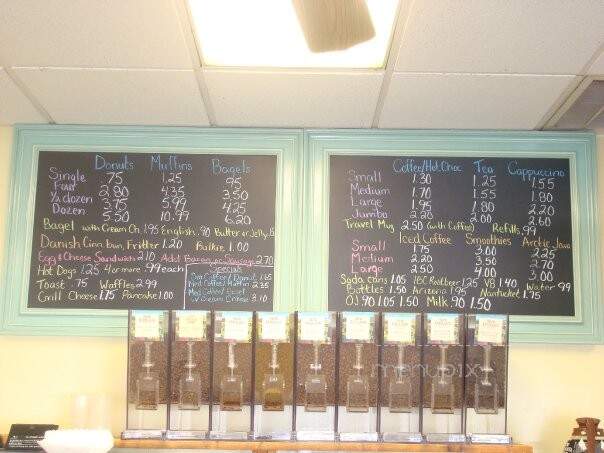 Donuts Muffins Bagels
Single .75 1.25 .95
Four 2.80 4.35 3.50
1/2 dozen 3.75 5.99 4.25
Dozen 5.50 10.99 6.20
Bagel with Cream Ch. 1.95 English .90 Butter or Jelly .15
Danish Cinn. bun, Fritter 1.20 1.00
Egg & Cheese Sandwich 2.10 Add Bacon or Sausage 2.70
Hot Dogs 1.25 4 or more .99 each
Toast .75 Waffles 2.99
Grill Cheese 1.75 Pancake 1.00
Specials
Sm Coffee/Donut 1.85
Med Coffee/Muffin 2.35
Med Coffee/Bagel
w/ Cream Cheese 3.10
Coffee/Hot Choc Tea Cappuccino
Small 1.30 1.25 1.55
Medium 1.70 1.55 1.80
Large 1.95 1.80 2.20
Jumbo 2.20 2.00 2.60
Travel Mug 2.50 (with Coffee) Refills .99
Iced Coffee Smoothies Arctic Java
Small 1.75 3.00 2.25
Medium 2.20 3.50 2.75
Large 2.50 4.00 3.00
Soda cans 1.05 IBC Rootbeer 1.25 V8 1.40 Water .99
Bottles 1.50 Arizona 1.95 Nantucket 1.75
OJ .90 1.05 1.50 Milk .90 1.50
menupix